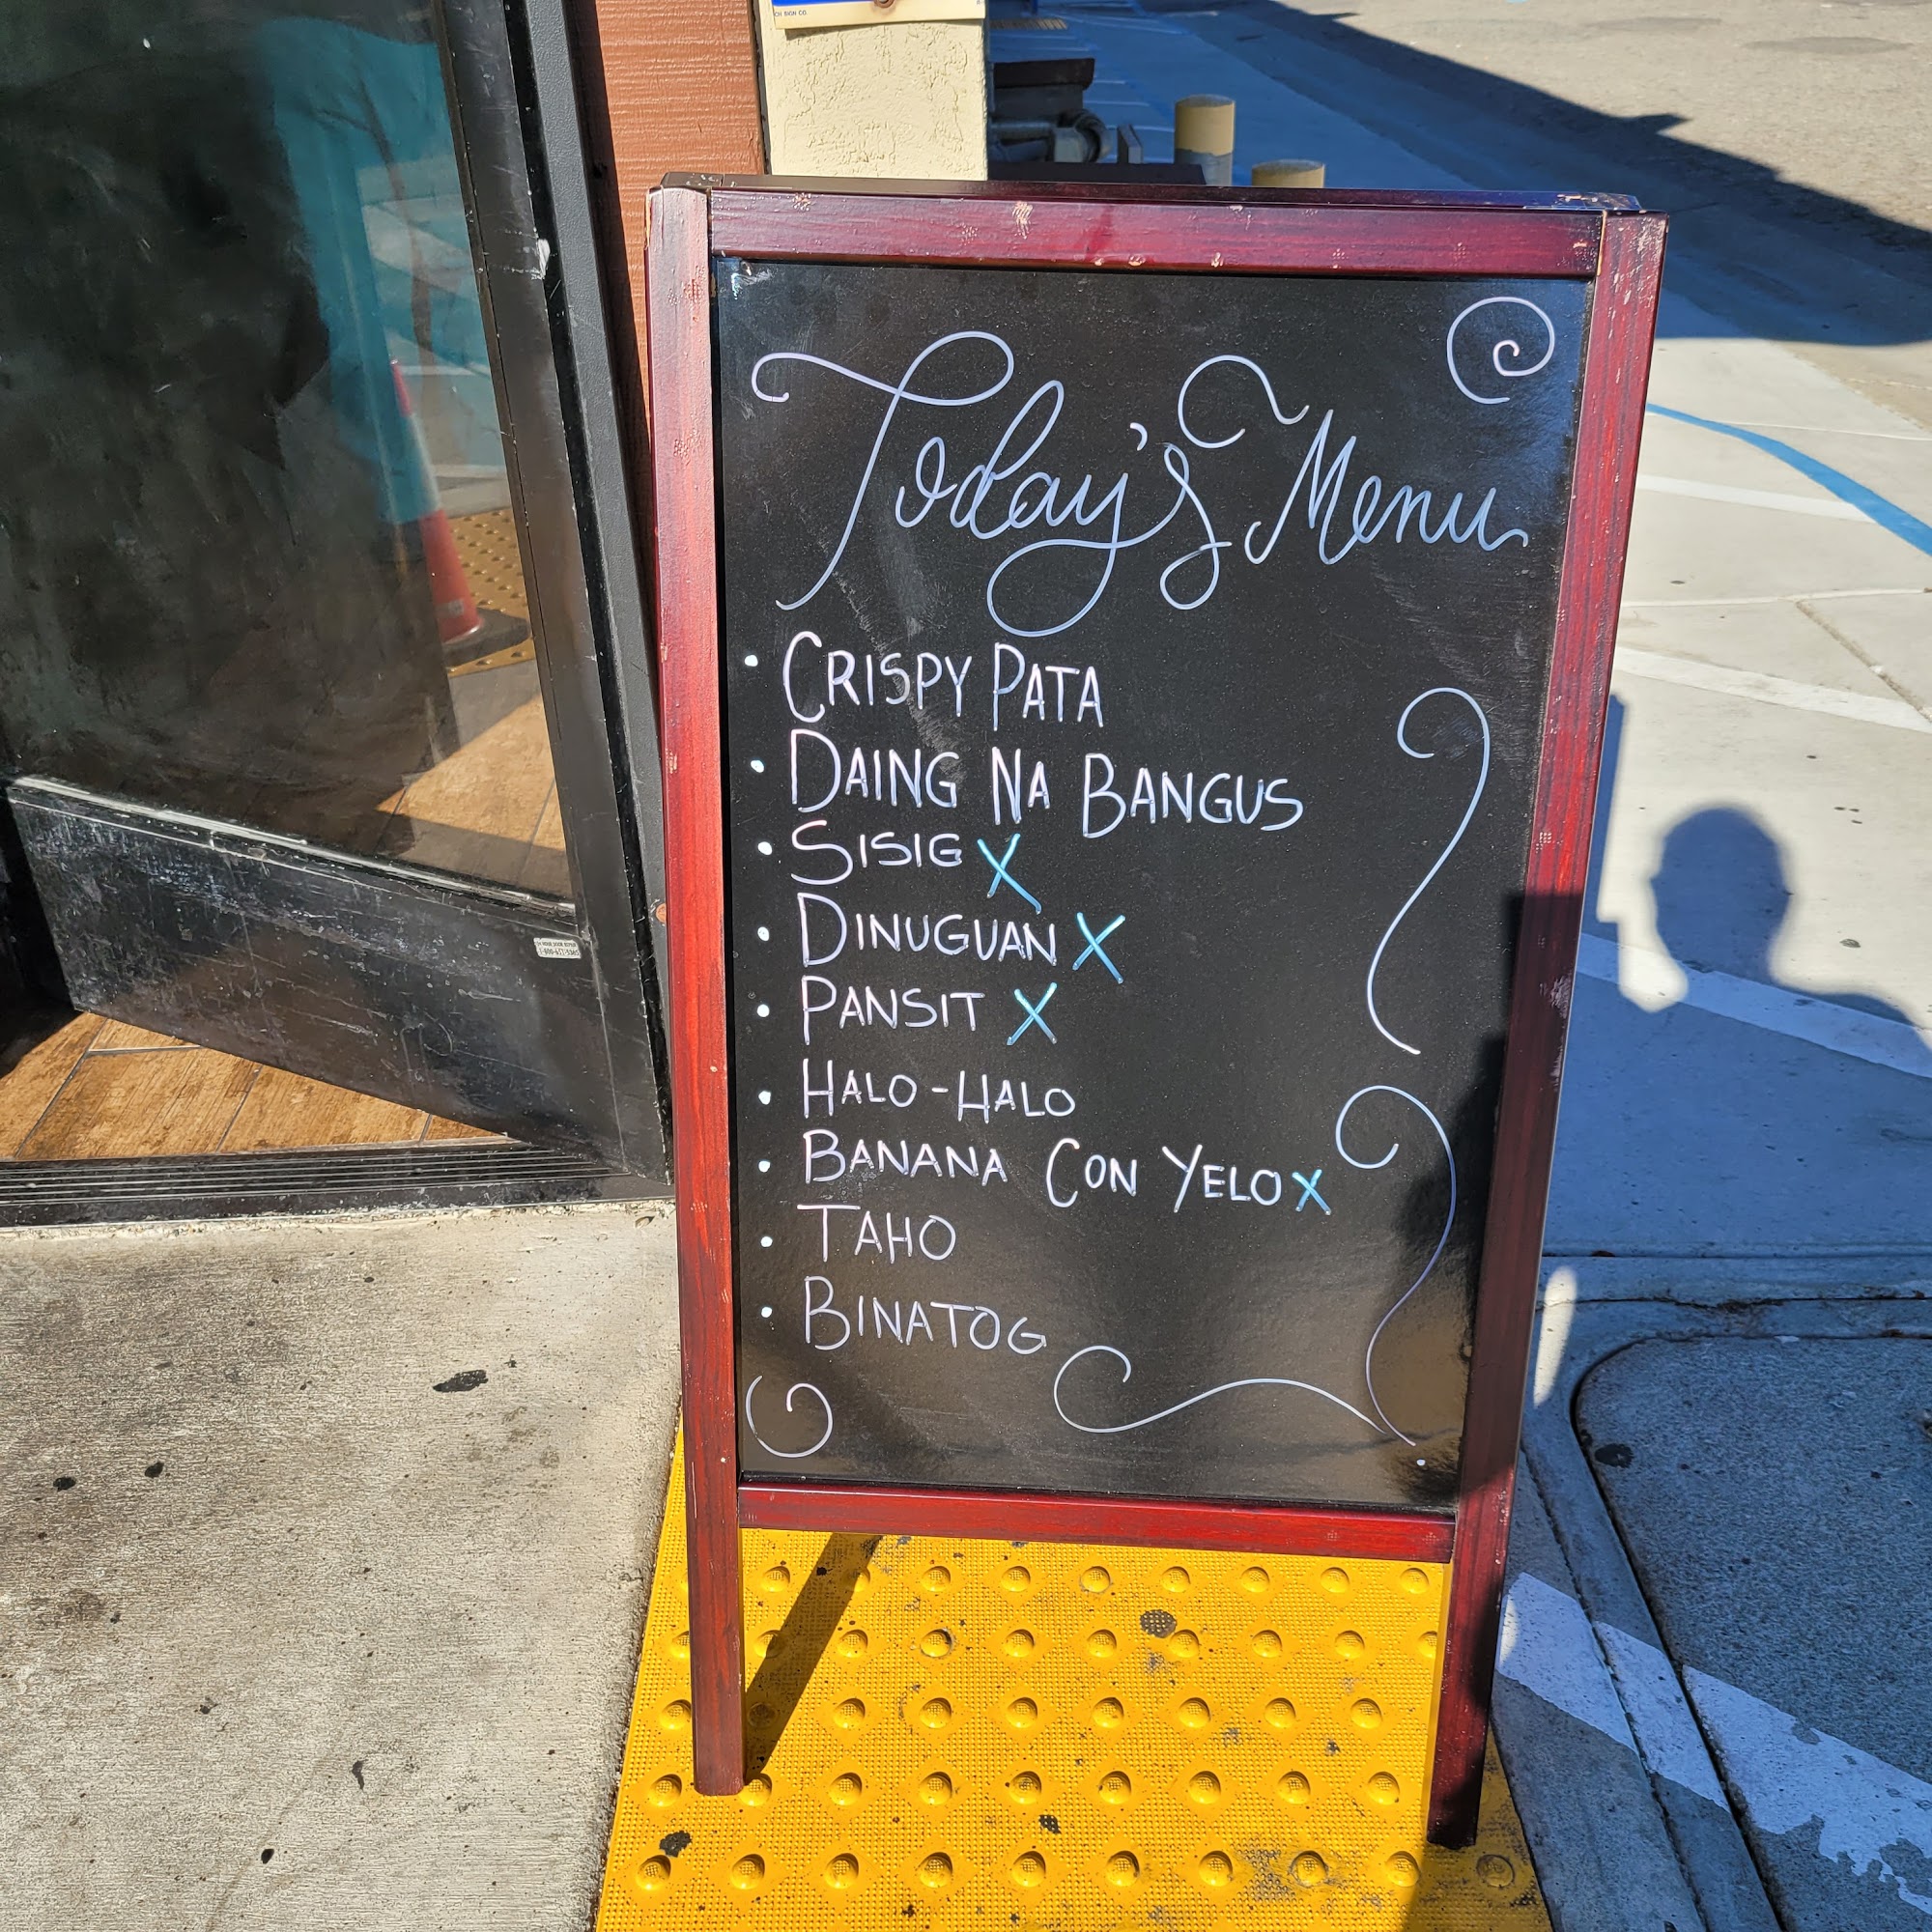 CH SIGN CO.
Today's Menu
• CRISPY PATA
• DAING NA BANGUS
• SISIG X
• DINUGUAN X
• PANSIT X
• HALO-HALO
• BANANA CON YELO X
• TAHO
• BINATOG